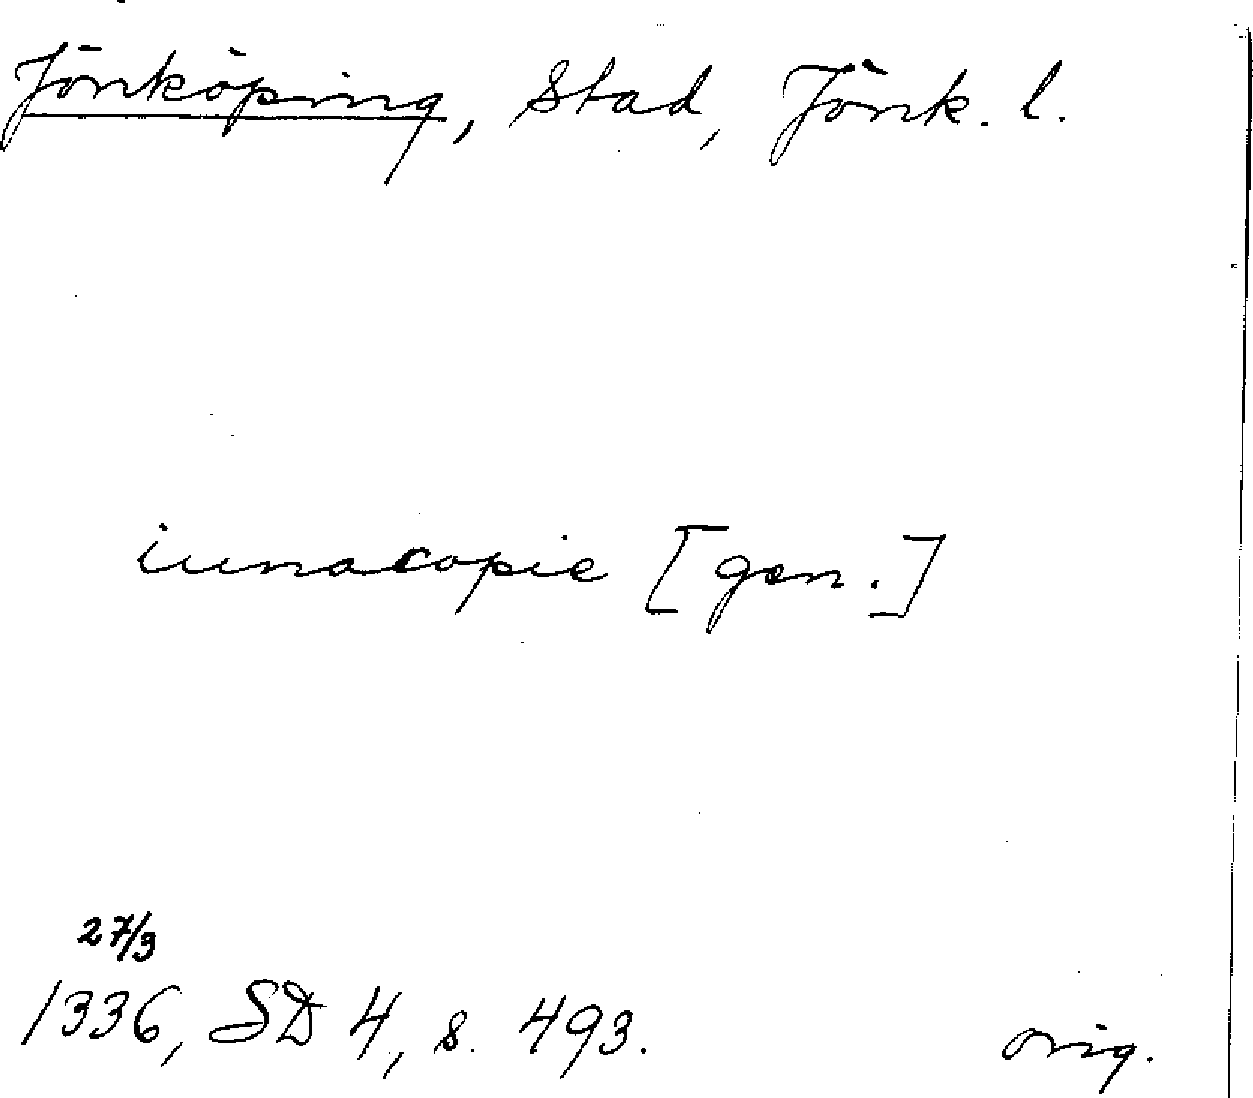 Jönköping, Stad, Jönk. l.
iunacopie [gen.]
27/3
1336, SD 4, s. 493.
orig.